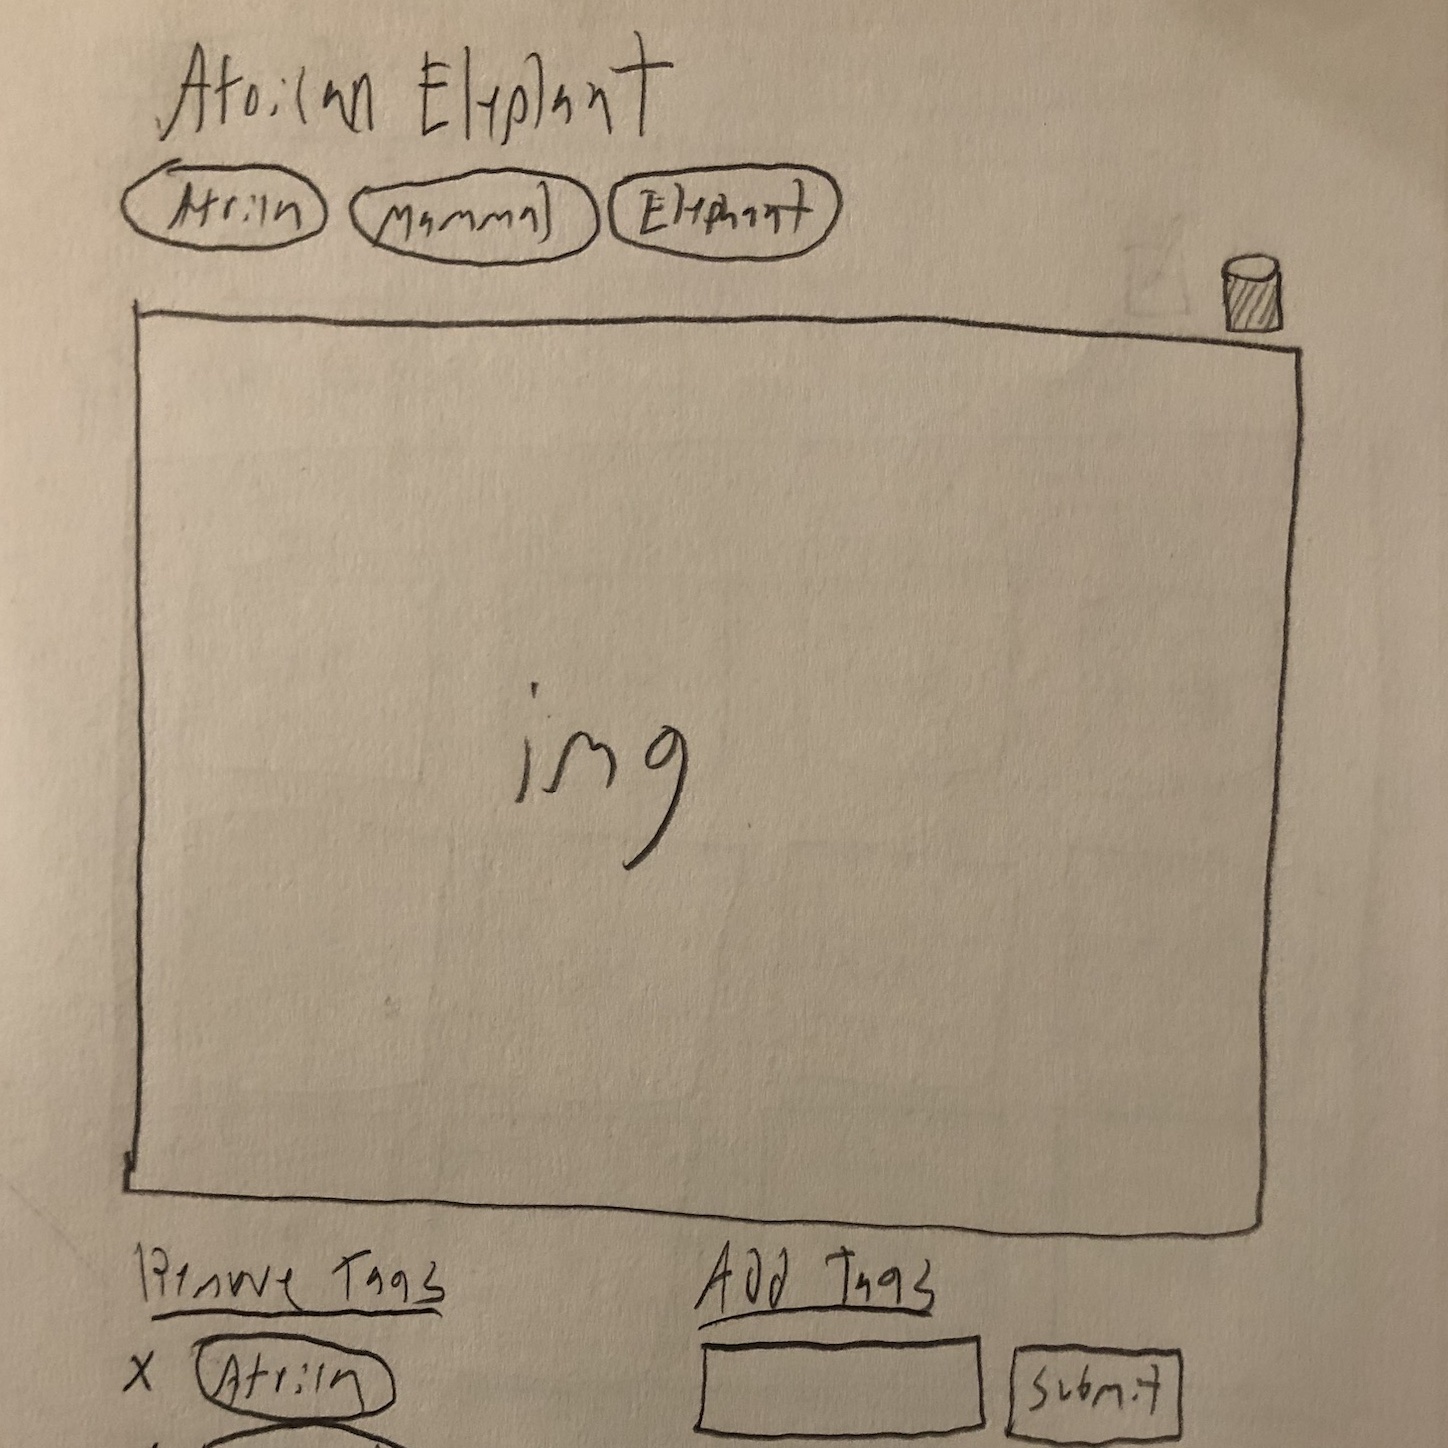 African Elephant
African Mammal Elephant
img
Remove Tags Add Tags
X African Submit